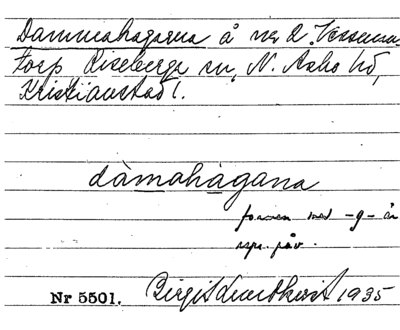 Dammahagarna å nr 2 Vessman-
torp Riseberga sn, N. Åsbo hd,
Kristianstad l.
dàmahàgana
formen med -g- är
spr. påv.
Nr 5501. Birgit Lundkvist 1935